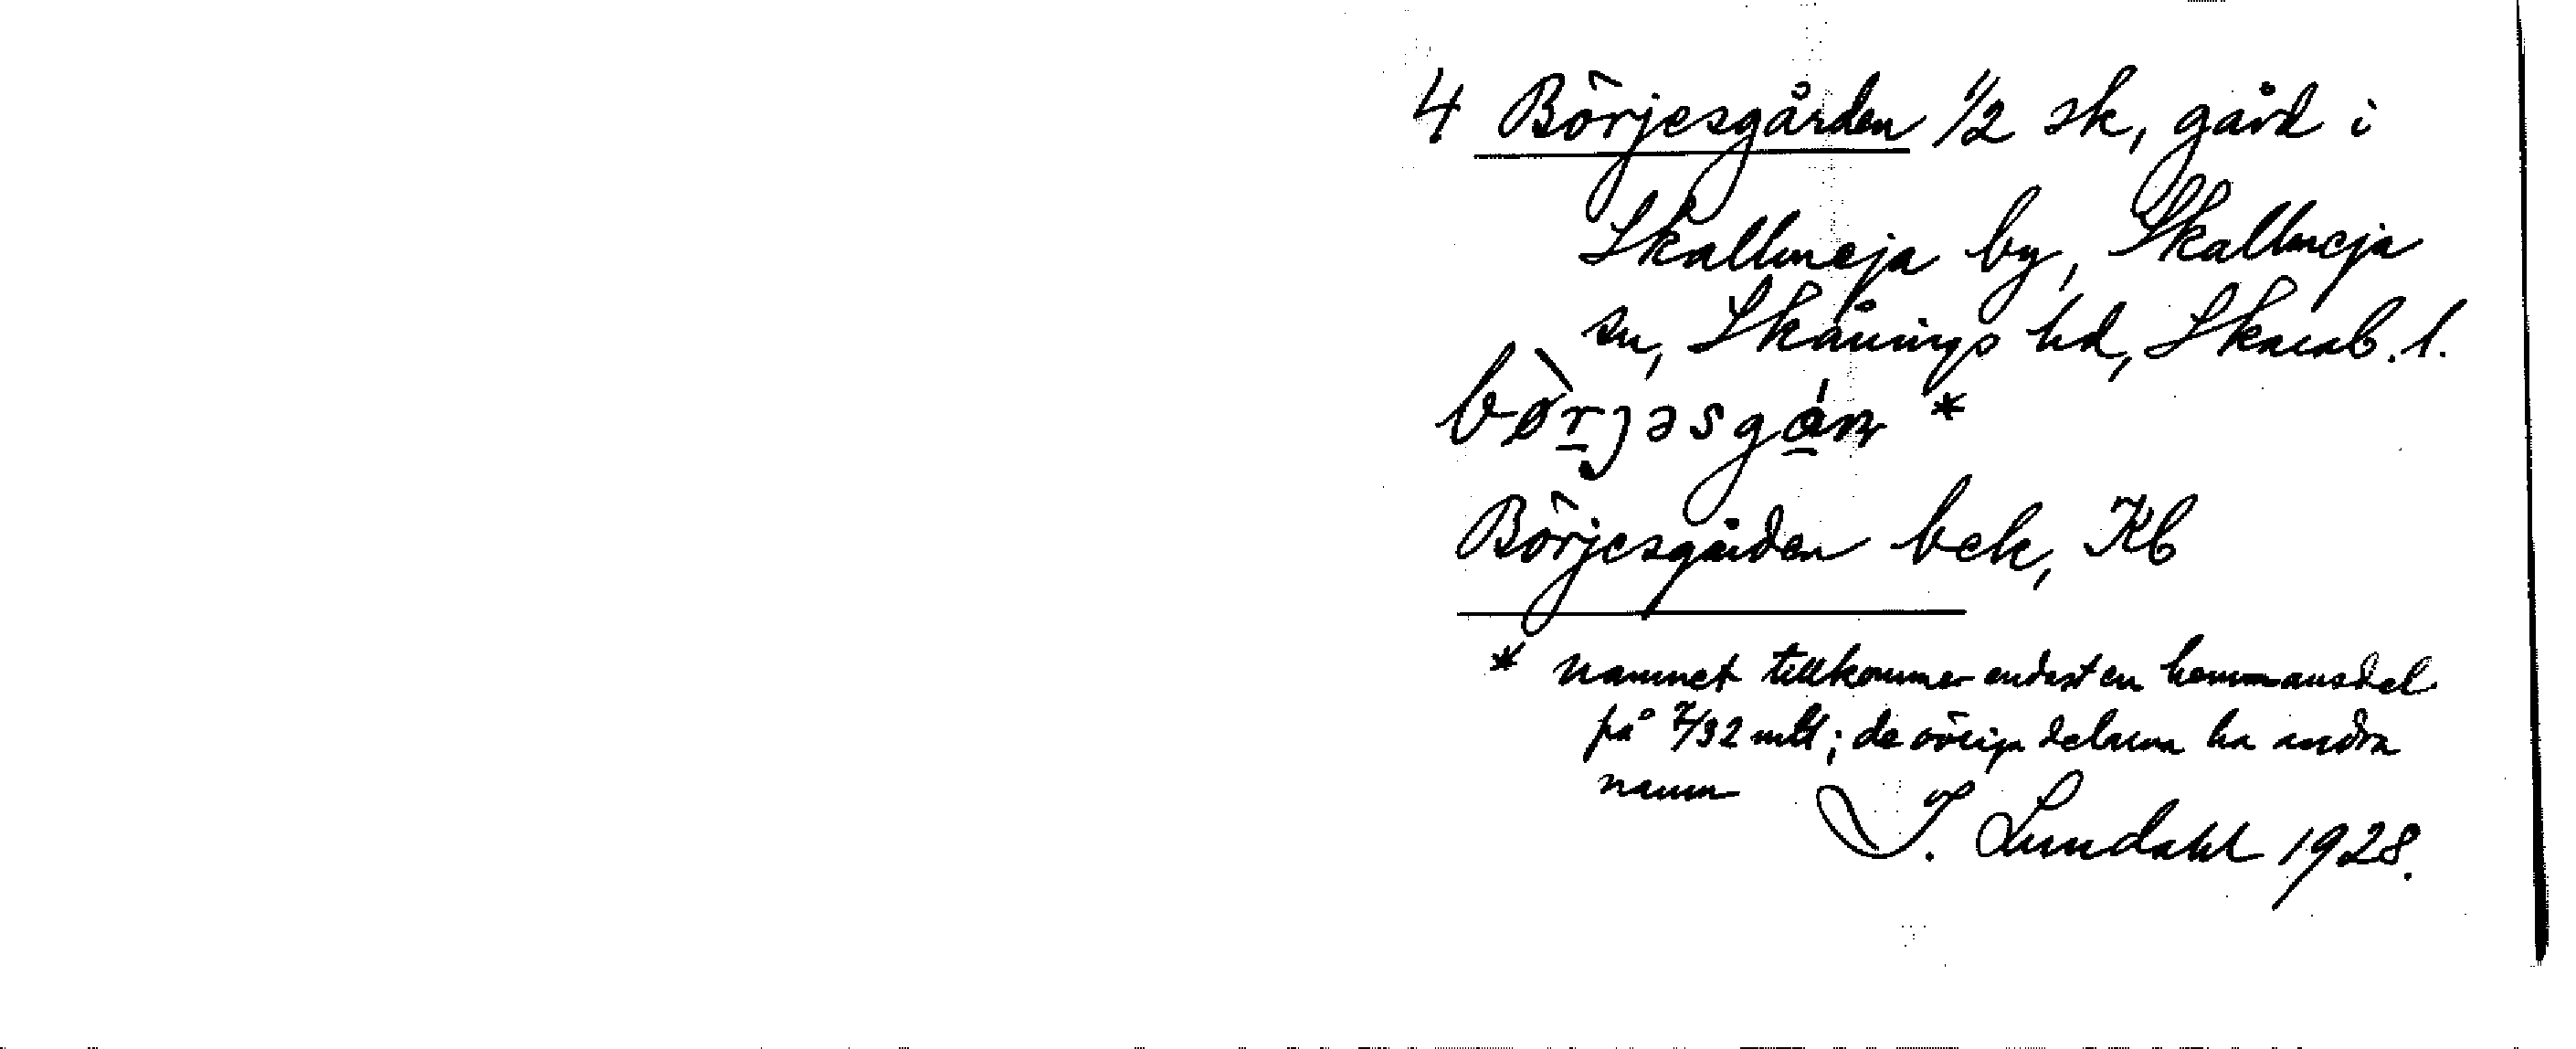 4 Börjesgården 1/2 sk, gård i
Skallmeja by, Skallmeja
sn, Skånings hd, Skarab. l.
bø̀rjəsgá̱n *
Börjesgården bek, Kb
* namnet tillkommer endast en hemmansdel
på 7/32 mtl; de övriga delarna ha andra
namn
I. Lundahl 1928.